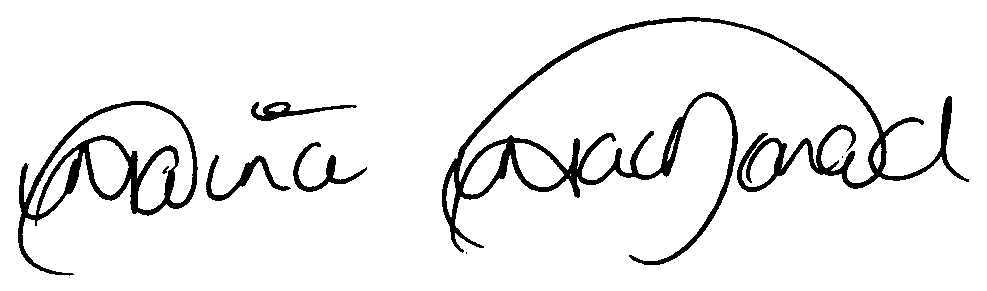 Maria MacDonald